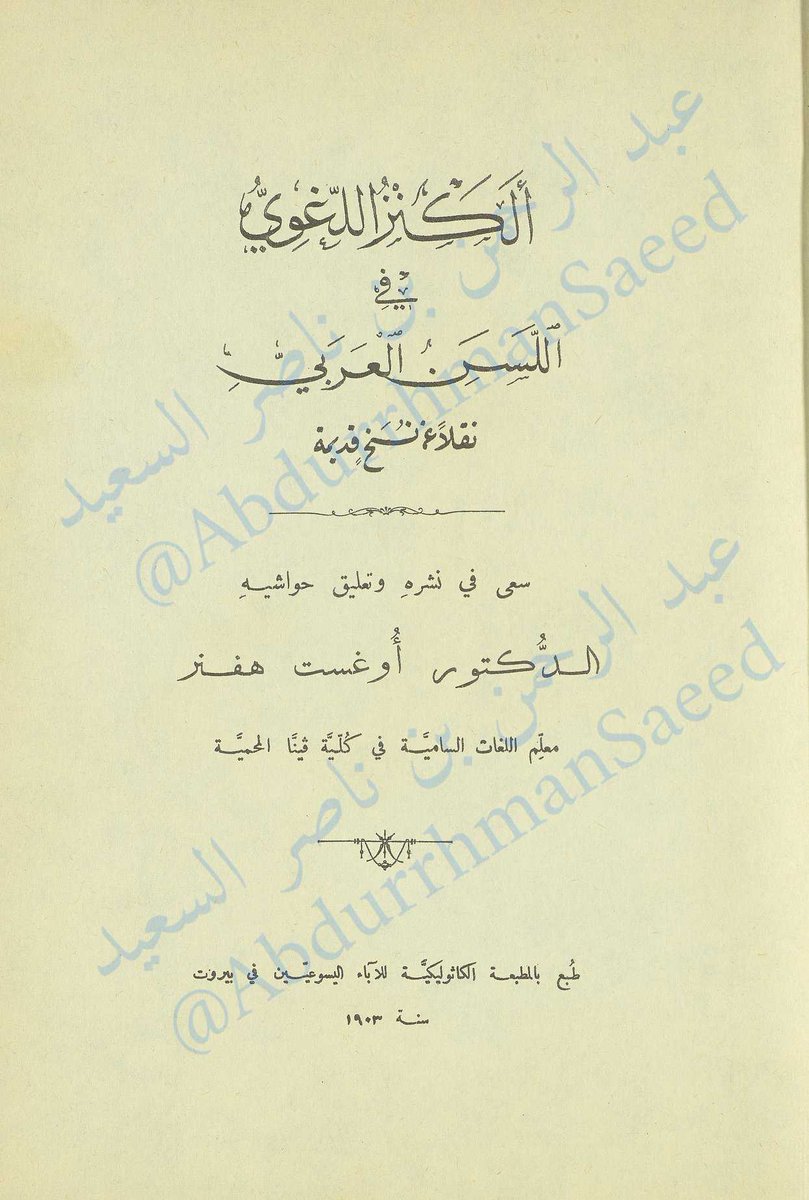 أَلَكَنْزُ اللُّغَوِيُّ
فِي
اللَّسَنِ الْعَرَبِيِّ
نقلاً عن نُسَخٍ قديمة
سعى في نشرهِ وتعليق حواشيهِ
الدُّكتور أُوغست هفنر
معلّم اللغات الساميَّة في كُلّيَّة ڤينَّا المحميَّة
طُبع بالمطبعة الكاثوليكيَّة للآباء اليسوعيّين في بيروت
سنة ١٩٠٣
عبد الرحمن بن ناصر السعيد
@AbdurrhmanSaeed
عبد الرحمن بن ناصر السعيد
@AbdurrhmanSaeed